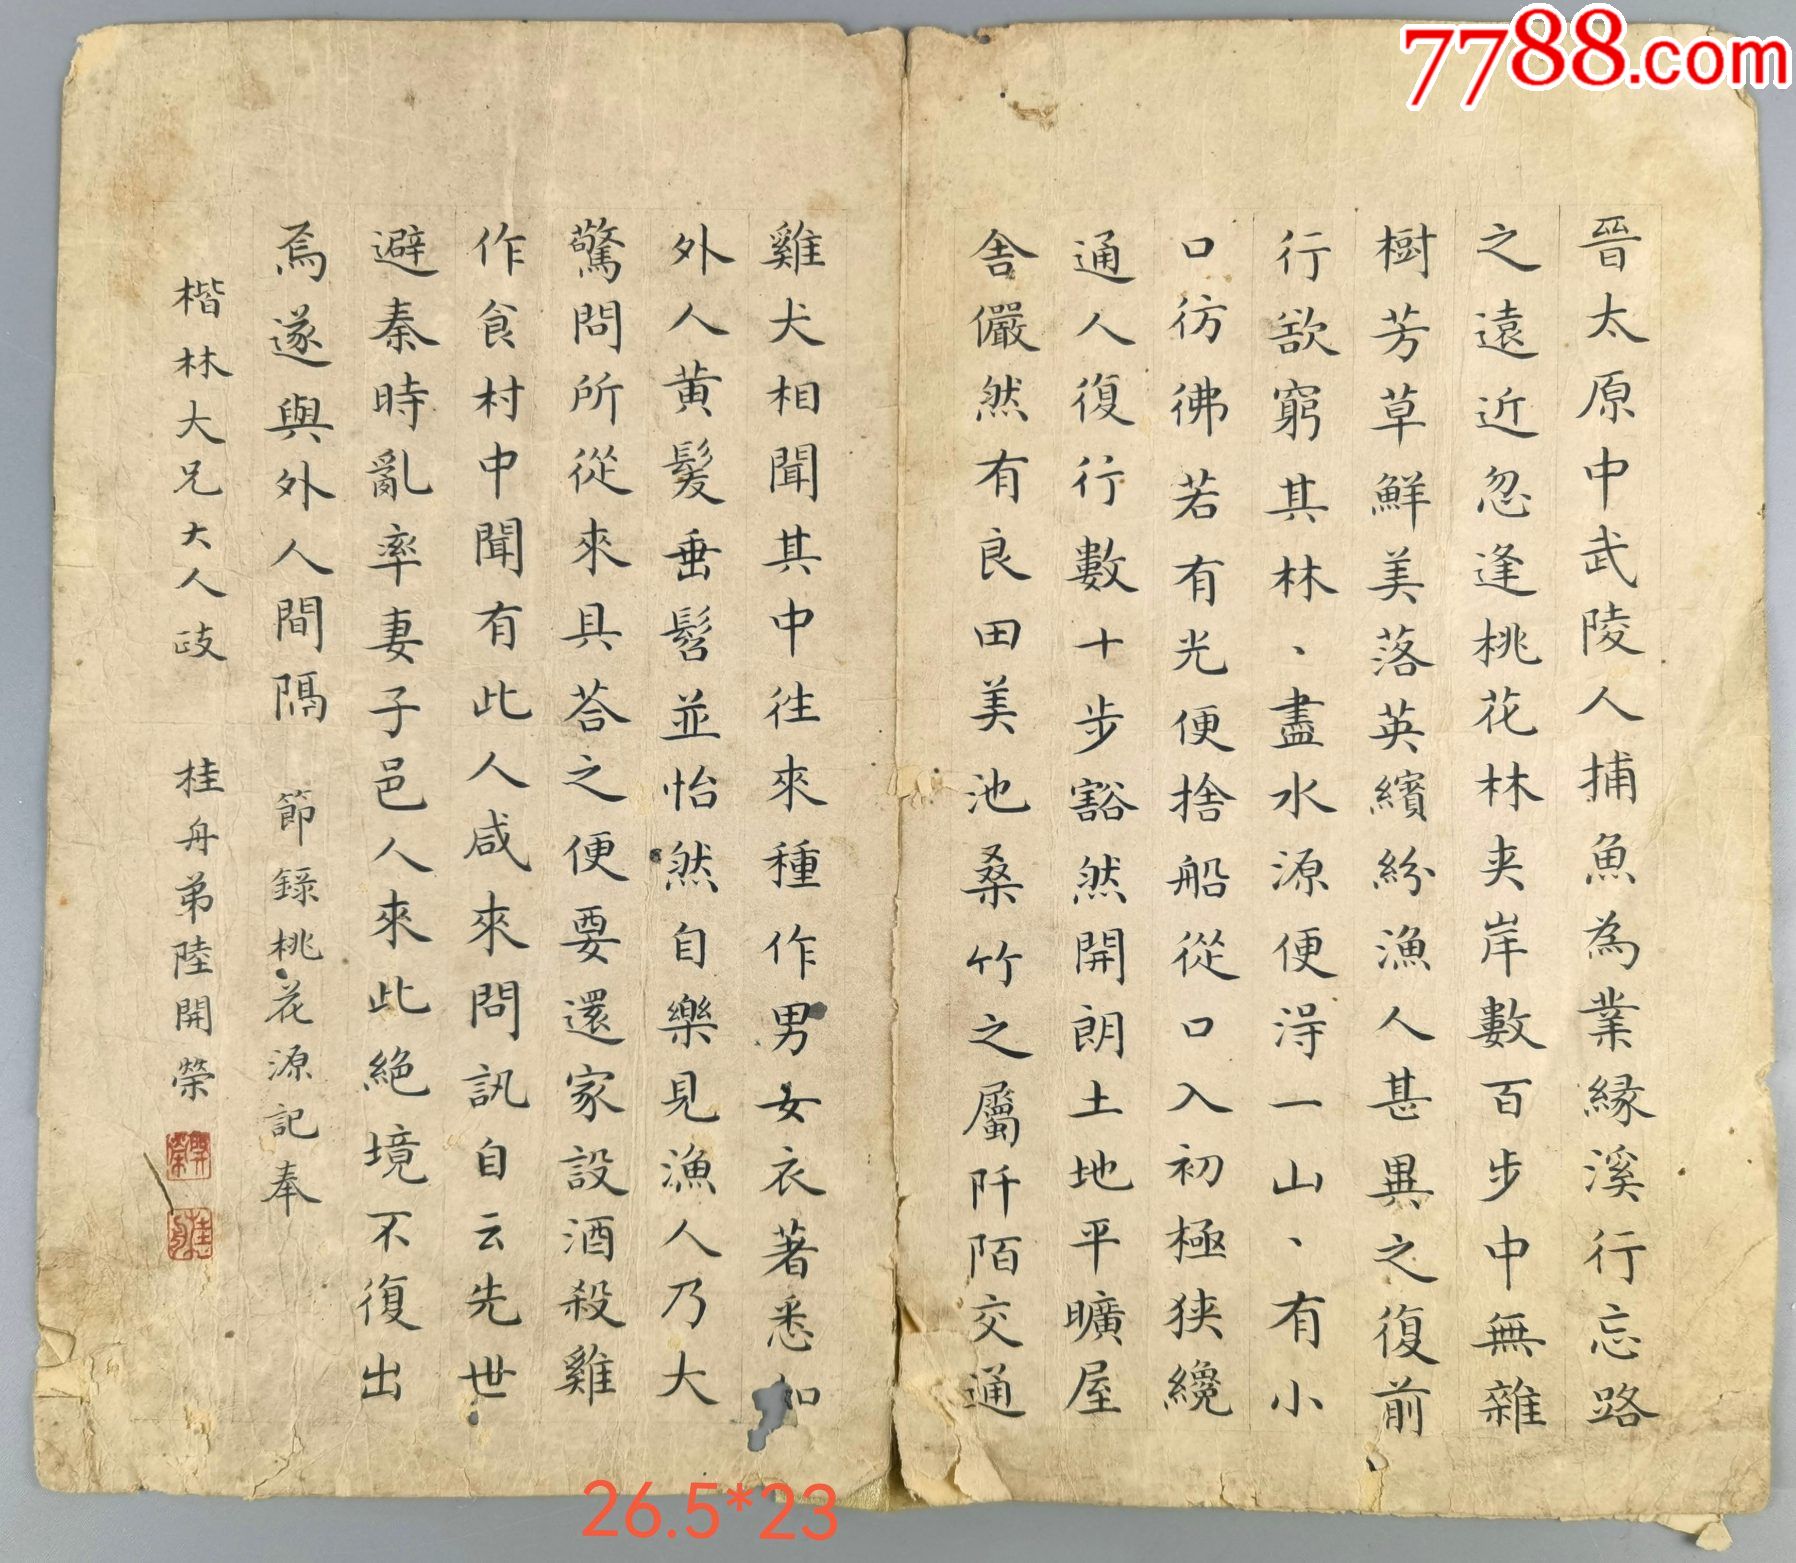 晉太原中武陵人捕魚為業緣溪行忘路
之遠近忽逢桃花林夹岸數百步中無雜
樹芳草鮮美落英繽紛漁人甚異之復前
行欲窮其林、盡水源便淂一山、有小
口彷彿若有光便捨船從口入初極狹纔
通人復行數十步豁然開朗土地平曠屋
舍儼然有良田美池桑竹之屬阡陌交通
雞犬相聞其中往來種作男女衣著悉如
外人黄髮垂髫並怡然自樂見漁人乃大
驚問所從來具荅之便要還家設酒殺雞
作食村中聞有此人咸來問訊自云先世
避秦時亂率妻子邑人來此絕境不復出
焉遂與外人間隔 節錄桃花源記奉
楷林大兄大人政 桂舟弟陸開榮
開榮
桂舟
7788.com
26.5*23